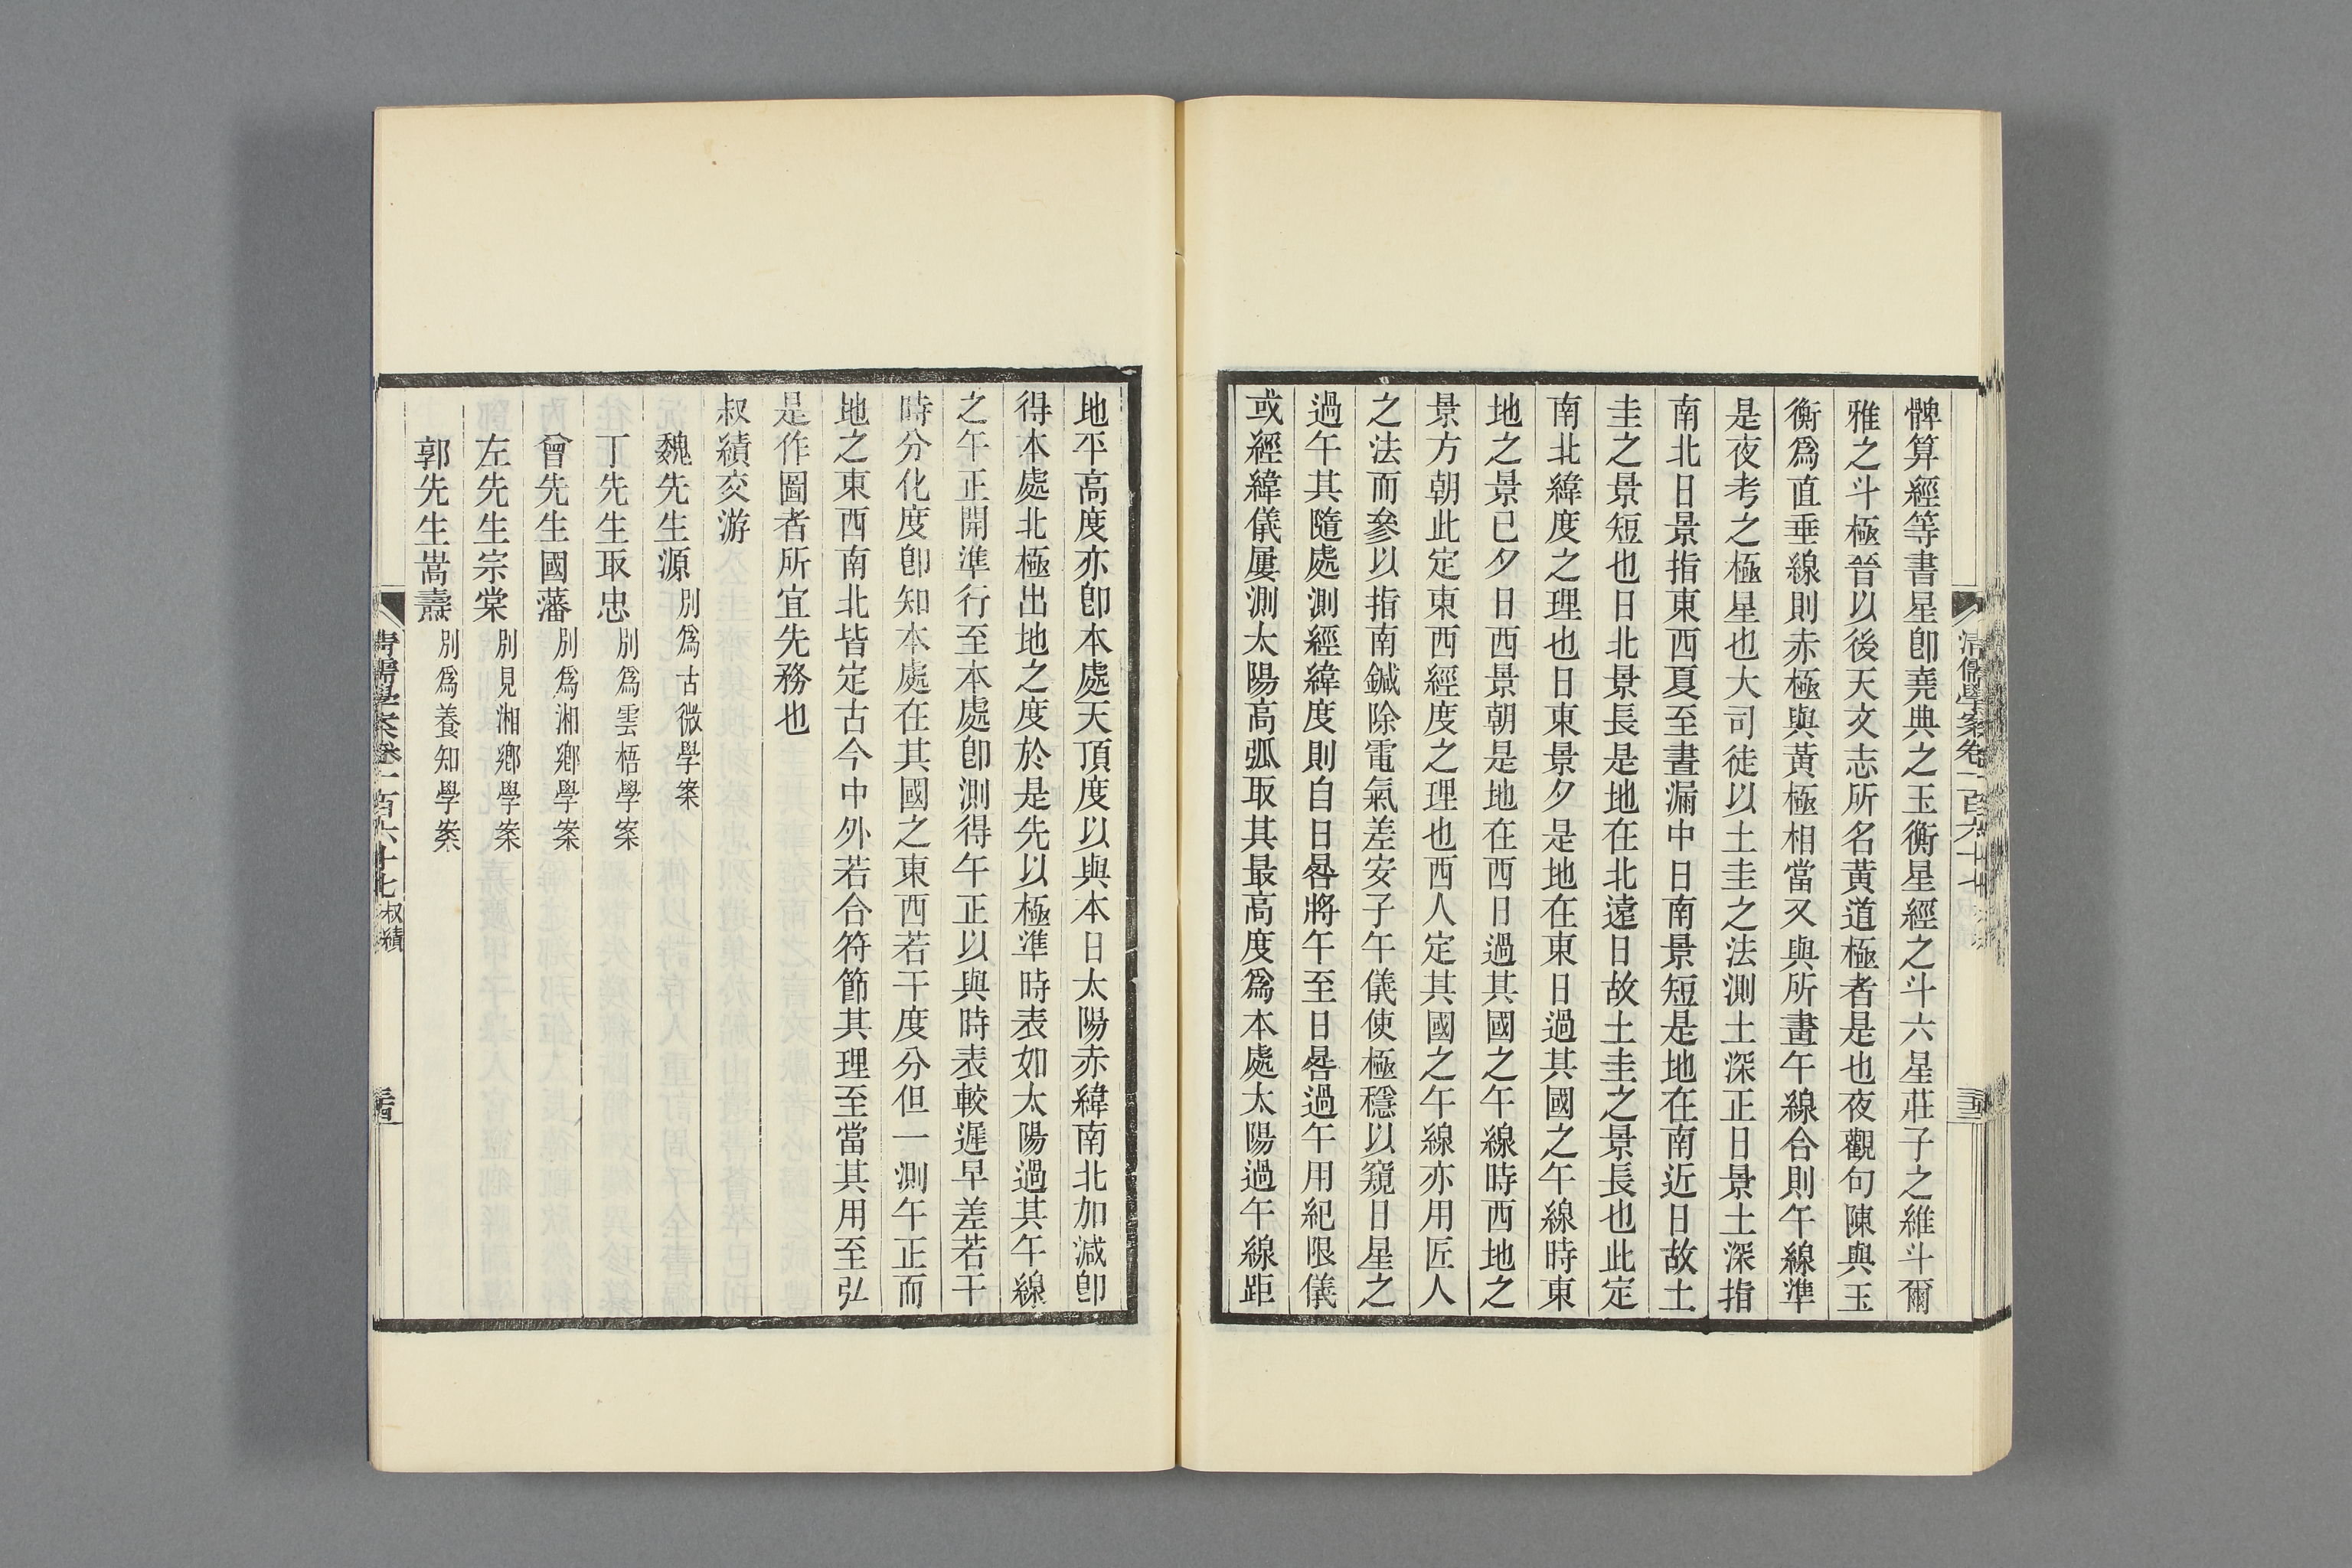 髀算經等書星卽堯典之玉衡星經之斗六星莊子之維斗爾
雅之斗極晉以後天文志所名黃道極者是也夜觀句陳與玉
衡爲直垂線則赤極與黃極相當又與所畫午線合則午線準
是夜考之極星也大司徒以土圭之法測土深正日景土深指
南北日景指東西夏至晝漏中日南景短是地在南近日故土
圭之景短也日北景長是地在北遠日故土圭之景長也此定
南北緯度之理也日東景夕是地在東日過其國之午線時東
地之景已夕日西景朝是地在西日過其國之午線時西地之
景方朝此定東西經度之理也西人定其國之午線亦用匠人
之法而參以指南鍼除電氣差安子午儀使極穩以窺日星之
過午其隨處測經緯度則自日晷將午至日晷過午用紀限儀
或經緯儀屢測太陽高弧取其最高度爲本處太陽過午線距
地平高度亦卽本處天頂度以與本日太陽赤緯南北加減卽
得本處北極出地之度於是先以極準時表如太陽過其午線
之午正開準行至本處卽測得午正以與時表較遲早差若干
時分化度卽知本處在其國之東西若干度分但一測午正而
地之東西南北皆定古今中外若合符節其理至當其用至弘
是作圖者所宜先務也
叔績交游
魏先生源別爲古微學案
丁先生取忠別爲雲梧學案
曾先生國藩別爲湘鄉學案
左先生宗棠別見湘鄉學案
郭先生嵩燾別爲養知學案
清儒學案卷一百六十七 叔績